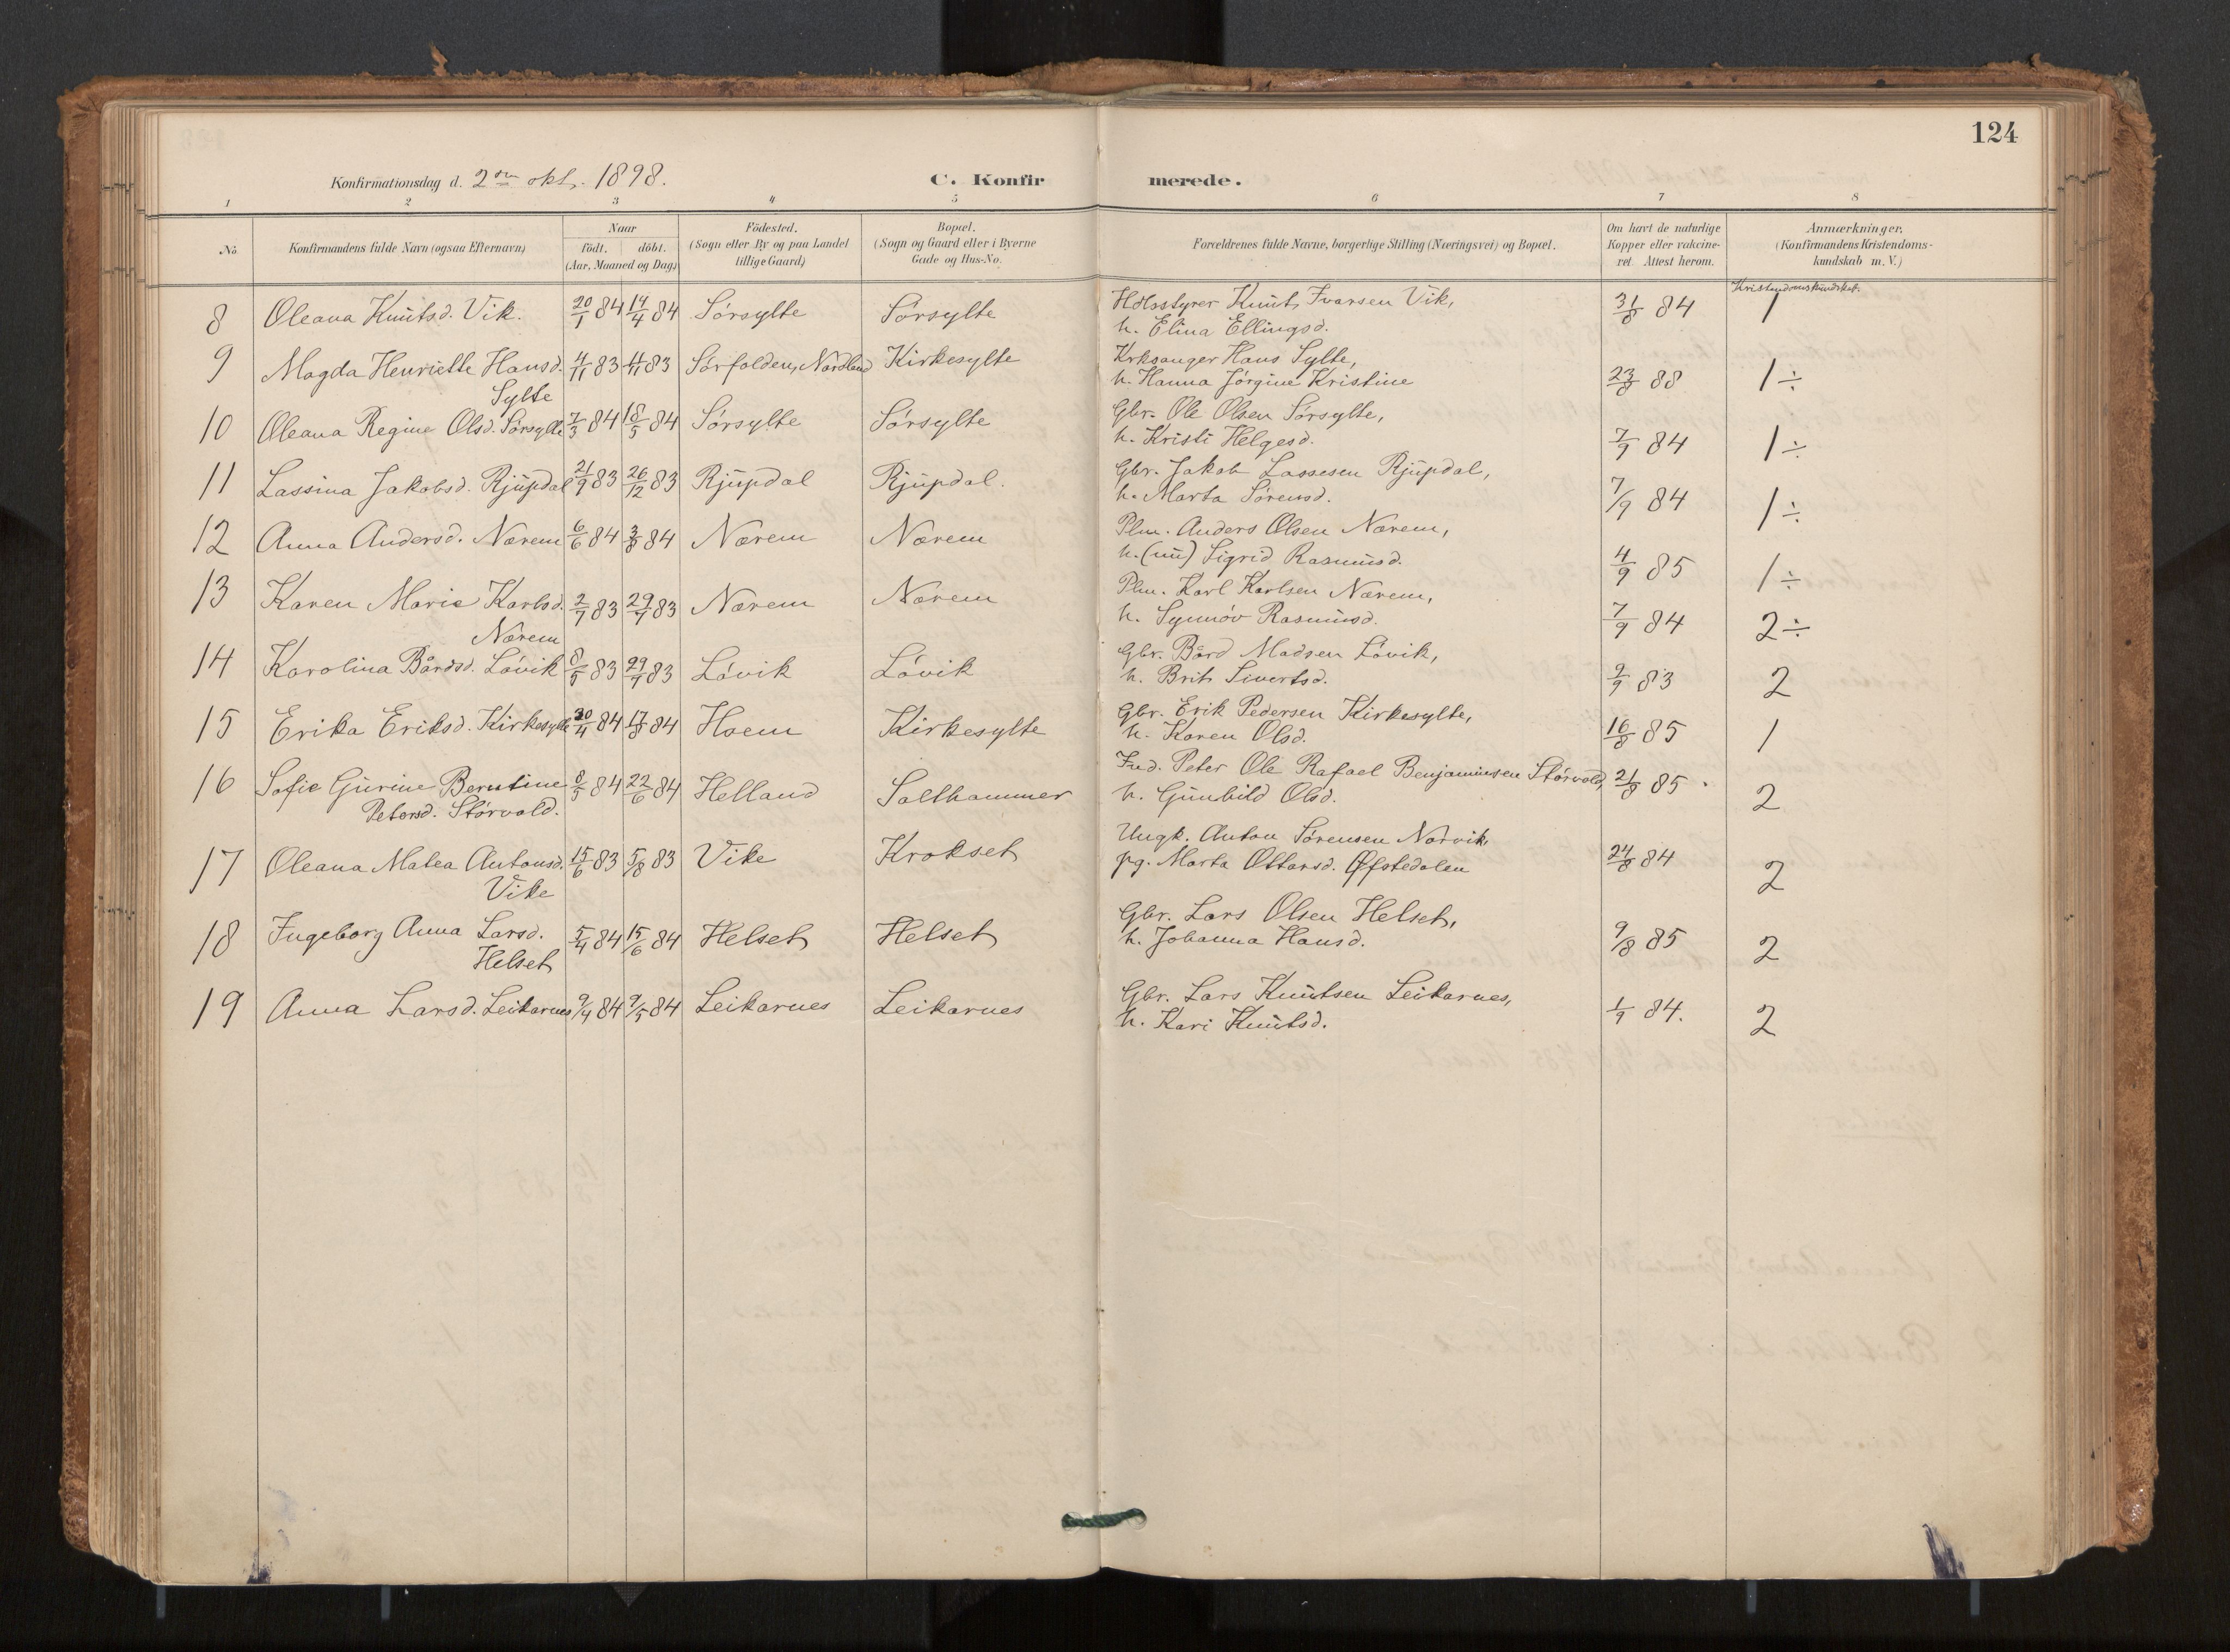 124
Konfirmationsdag d. 2den okt. 1898.
C. Konfirmerede.
1 2 3 4 5 6 7 8
No. Konfirmandens fulde Navn (ogsaa Efternavn) Naar födt. döbt. (Aar, Maaned og Dag.) Födested. (Sogn eller By og paa Landet tillige Gaard) Bopæl. (Sogn og Gaard eller i Byerne Gade og Hus-No. Forældrenes fulde Navne, borgerlige Stilling (Næringsvei) og Bopæl. Om havt de naturlige Kopper eller vakcineret. Attest herom. Anmærkninger. (Konfirmandens Kristendomskundskab m. V.)
Kristendomskundskab.
8 Oleana Knutsd. Vik. 20/1 84 14/4 84 Sörsylte Sörsylte Knut Ivarsen Vik, 31/8 84 1
h. Elina Ellingsd.
9 Magda Henriette Hansd. 4/11 83 83 Sörfolden, Nordland Kirkesylte Krksanger Hans Sylte,
Sylte h. Hanna Jörgine Kristine 23/8 88 1 ÷
10 Oleana Regine Olsd. Sörsylte 7/3 84 18/5 84 Sörsylte Sörsylte Gbr. Ole Olsen Sörsylte,
h. Kristi Helgesd. 7/9 84 1 ÷
11 Lassina Jakobsd. Rjupdal 21/9 83 26/12 83 Rjupdal Rjupdal. Gbr. Jakob Lassesen Rjupdal,
h. Marta Sörensd. 7/9 84 1 ÷
12 Anna Andersd. Nærem 6/6 84 3/8 84 Nærem Nærem Plm. Anders Olsen Nærem,
h. (nu) Sigrid Rasmusd. 4/9 85 1 ÷
13 Karen Marie Karlsd. 2/7 83 29/7 83 Nærem Nærem Plm. Karl Karlsen Nærem,
Nærem h. Synnöv Rasmusd. 7/9 84 2 ÷
14 Karolina Bårdsd. Lövik 8/5 83 29/7 83 Lövik Lövik Gbr. Bård Madsen Lövik,
h. Brit Sivertsd. 2/9 83 2
15 Erika Eriksd. Kirkesylte 30/4 84 17/8 84 Hoem Kirkesylte Gbr. Erik Pedersen Kirkesylte,
h. Karen Olsd. 16/8 85 1
16 Sofie Gurine Berntine 8/5 84 22/6 84 Helland Salthammer Ind. Peter Ole Rafael Benjaminsen Störvold, 21/8 85
Petersd. Störvold. h. Gunhild Olsd. 2
17 Oleana Matea Antonsd. 15/6 83 5/8 83 Vike Krokset Ungk. Anton Sörensen Norvik,
Vike pg. Marta Ottarsd. Öfstedalen 24/8 84 2
18 Ingeborg Anna Larsd. 5/4 84 15/6 84 Helset Helset Gbr. Lars Olsen Helset,
Helset h. Johanna Hansd. 9/8 85 2
19 Anna Larsd. Leikarnes 9/4 84 9/5 84 Leikarnes Leikarnes Gbr. Lars Knutsen Leikarnes,
h. Kari Knutsd. 1/9 84. 2